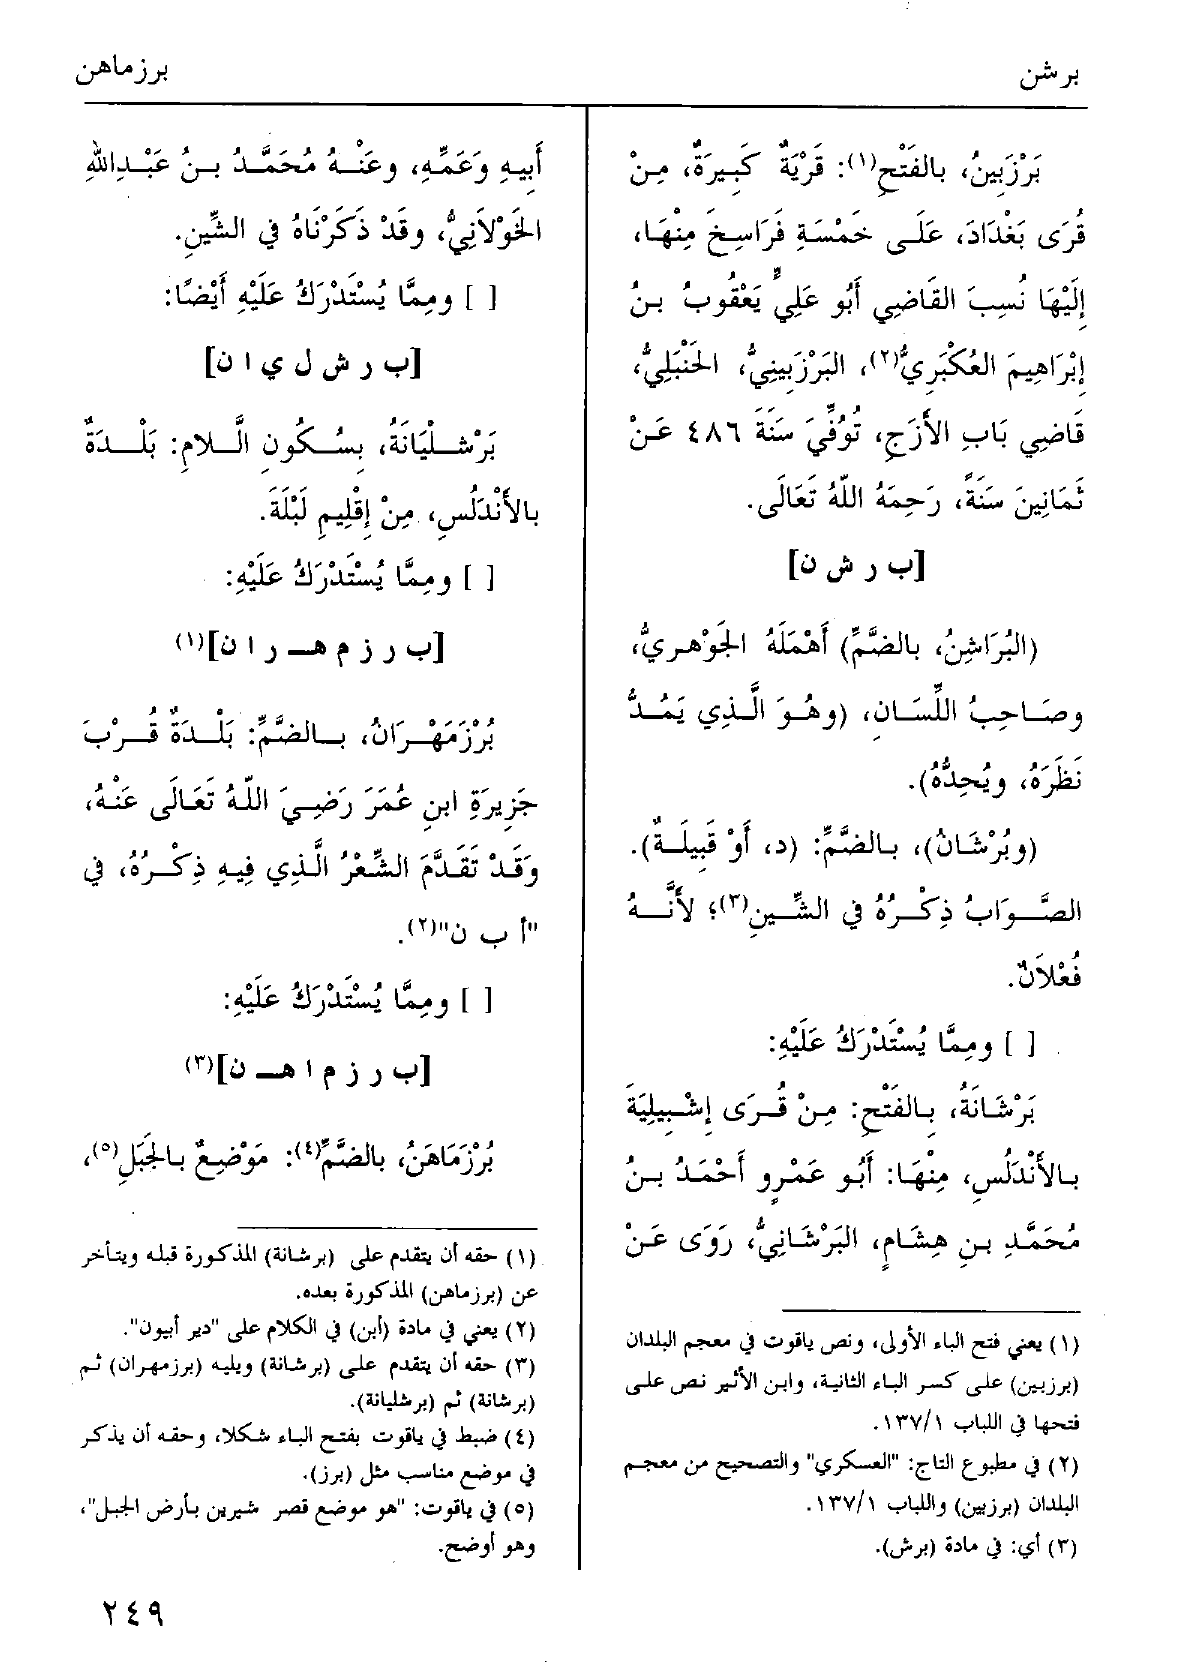 برشن
برزماهن
بَرْزَبِينُ، بالفَتْحِ(١): قَرْيَةٌ كَبِيرَةٌ، مِنْ
قُرَى بَغْدَادَ، عَلَى خَمْسَةِ فَرَاسِخَ مِنْهَا،
إِلَيْهَا نُسِبَ القَاضِي أَبُو عَلِيٍّ يَعْقُوبُ بنُ
إِبْرَاهِيمَ العُكْبَرِيُّ(٢)، البَرْزَبِينِيُّ، الحَنْبَلِيُّ،
قَاضِي بَابِ الأَزَجِ، تُوُفِّيَ سَنَةَ ٤٨٦ عَنْ
ثَمَانِينَ سَنَةً، رَحِمَهُ اللّهُ تَعَالَى.
[ب ر ش ن]
(البُرَاشِنُ، بالضَّمِّ) أَهْمَلَهُ الجَوْهَرِيُّ،
وصَاحِبُ اللِّسَانِ، (وهُوَ الَّذِي يَمُدُّ
نَظَرَهُ، ويُحِدُّهُ).
(وبُرْشَانُ)، بالضَّمِّ: (د، أَوْ قَبِيلَةٌ).
الصَّوَابُ ذِكْرُهُ في الشِّينِ(٣)؛ لأَنَّهُ
فُعْلاَنٌ.
[ ] ومِمَّا يُسْتَدْرَكُ عَلَيْهِ:
بَرْشَانَةُ، بالفَتْحِ: مِنْ قُرَى إِشْبِيلِيَةَ
بالأَنْدَلُسِ، مِنْهَا: أَبُو عَمْرٍو أَحْمَدُ بنُ
مُحَمَّدِ بنِ هِشَامٍ، البَرْشَانِيُّ، رَوَى عَنْ
(١) يعني فتح الباء الأولى، ونص ياقوت في معجم البلدان
(برزبين) على كسر الباء الثانية، وابن الأثير نص على
فتحها في اللباب ١٣٧/١.
(٢) في مطبوع التاج: "العسكري" والتصحيح من معجم
البلدان (برزبين) واللباب ١٣٧/١.
(٣) أي: في مادة (برش).
أَبِيهِ وَعَمِّهِ، وعَنْهُ مُحَمَّدُ بنُ عَبْدِاللهِ
الخَوْلاَنِيُّ، وقَدْ ذَكَرْنَاهُ في الشِّينِ.
[ ] ومِمَّا يُسْتَدْرَكُ عَلَيْهِ أَيْضًا:
[ب ر ش ل ي ا ن]
بَرْشْلِيَانَةُ، بسُكُونِ الَّلامِ: بَلْدَةٌ
بالأَنْدَلُسِ، مِنْ إِقْلِيمِ لَبْلَةَ.
[ ] ومِمَّا يُسْتَدْرَكُ عَلَيْهِ:
[ب ر ز م هـ ر ا ن](١)
بُرْزَمَهْرَانُ، بالضَّمِّ: بَلْدَةٌ قُرْبَ
جَزِيرَةِ ابنِ عُمَرَ رَضِيَ اللّهُ تَعَالَى عَنْهُ،
وَقَدْ تَقَدَّمَ الشِّعْرُ الَّذِي فِيهِ ذِكْرُهُ، في
"أ ب ن"(٢).
[ ] ومِمَّا يُسْتَدْرَكُ عَلَيْهِ:
[ب ر ز م ا هـ ن](٣)
بُرْزَمَاهَنُ، بالضَّمِّ(٤): مَوْضِعٌ بالجَبَلِ(٥)،
(١) حقه أن يتقدم على (برشانة) المذكورة قبله ويتأخر
عن (برزماهن) المذكورة بعده.
(٢) يعني في مادة (أبن) في الكلام على "دير أبيون".
(٣) حقه أن يتقدم على (برشانة) ويليه (برزمهران) ثم
(برشانة) ثم (برشليانة).
(٤) ضبط في ياقوت بفتح الباء شكلا، وحقه أن يذكر
في موضع مناسب مثل (برز).
(٥) في ياقوت: "هو موضع قصر شيرين بأرض الجبل"،
وهو أوضح.
٢٤٩